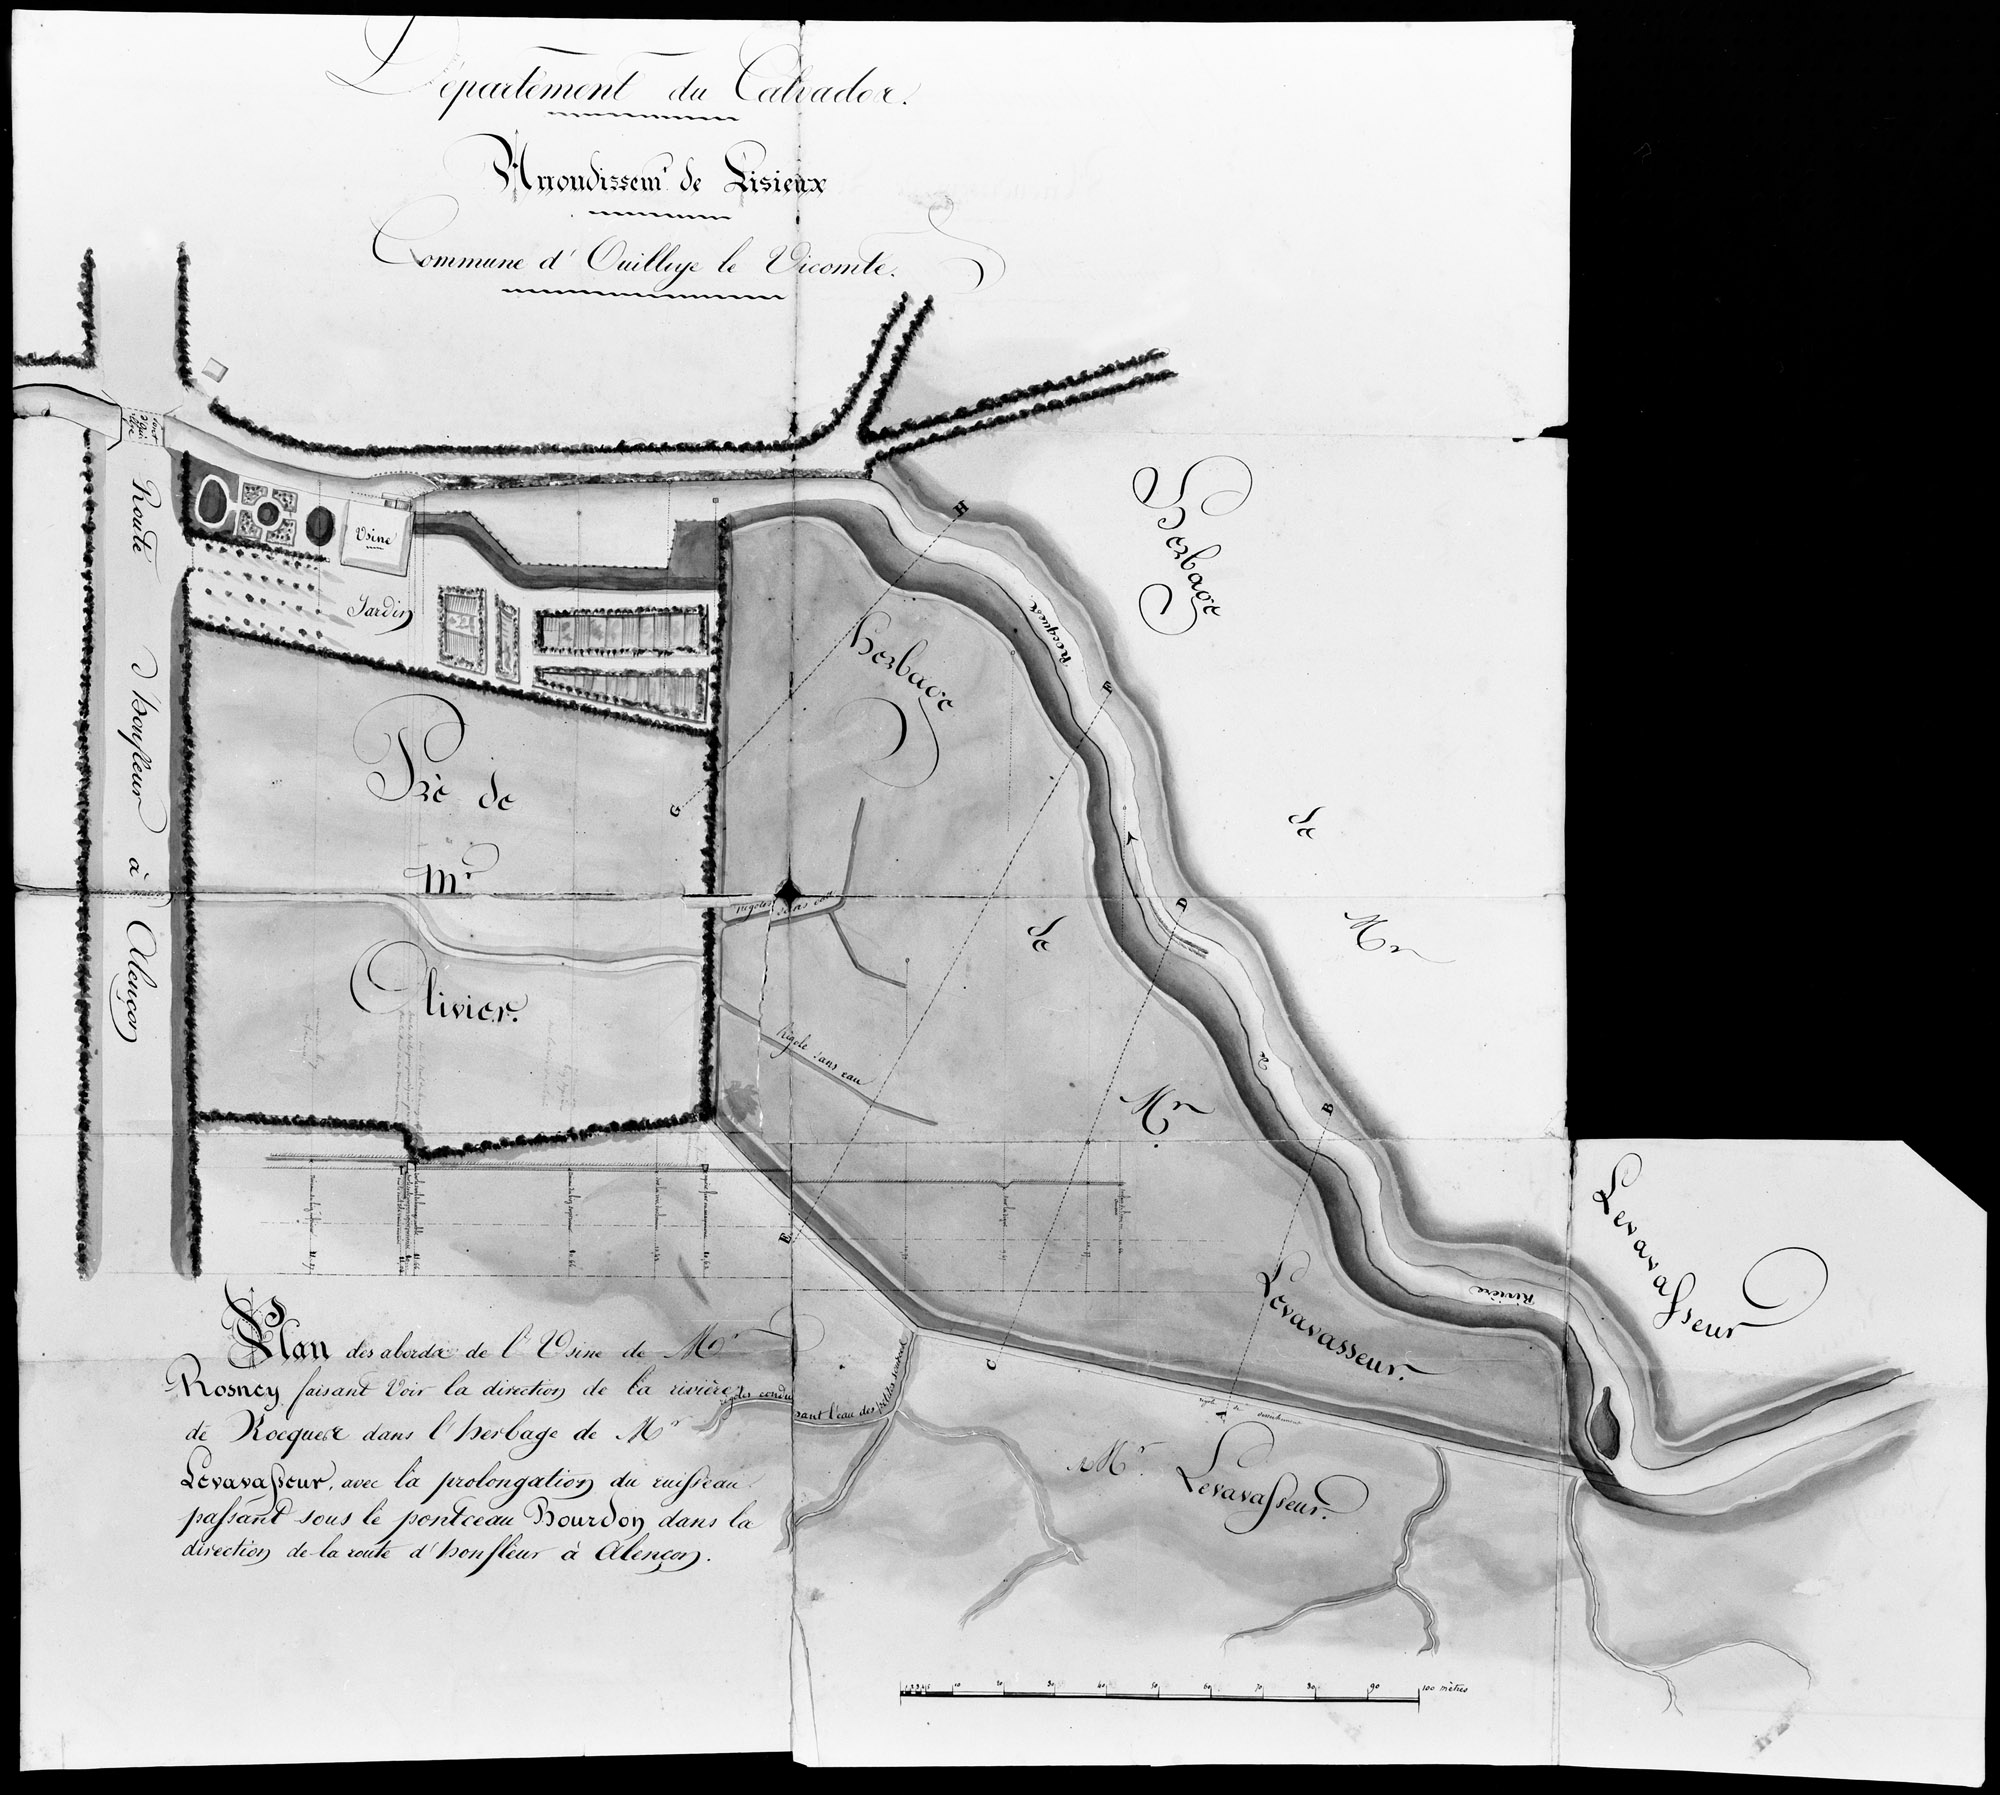 Département du Calvados.
Arrondissemt. de Lisieux
Commune d'Ouillye le Vicomte.
Route d'honfleur à Alençon
Usine
Jardin
Pré de
Mr.
Olivier.
Herbage
de
Mr
Levavasseur.
Herbage
de
Mr
Levavasseur
Rivière
de
Rocques
H
F
D
B
G
E
C
A
rigoles sans eau
Rigole sans eau
rigoles conduisant l'eau des petites sources
rigole de
Mr. Levavasseur.
Plan des abords de l'Usine de Mr
Rosney faisant Voir la direction de la rivière
de Rocques dans l'herbage de Mr
Levavasseur, avec la prolongation du ruisseau
passant sous le pontceau Bourdon dans la
direction de la route d'honfleur à Alençon.
10 20 30 40 50 60 70 80 90 100 mètres